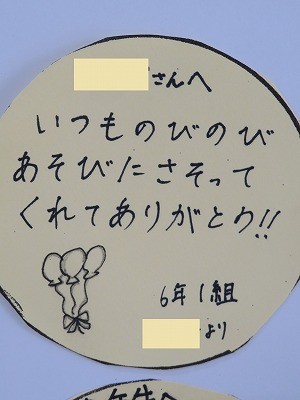 さんへ
いつものびのび
あそびにさそって
くれてありがとう!!
6年1組
より